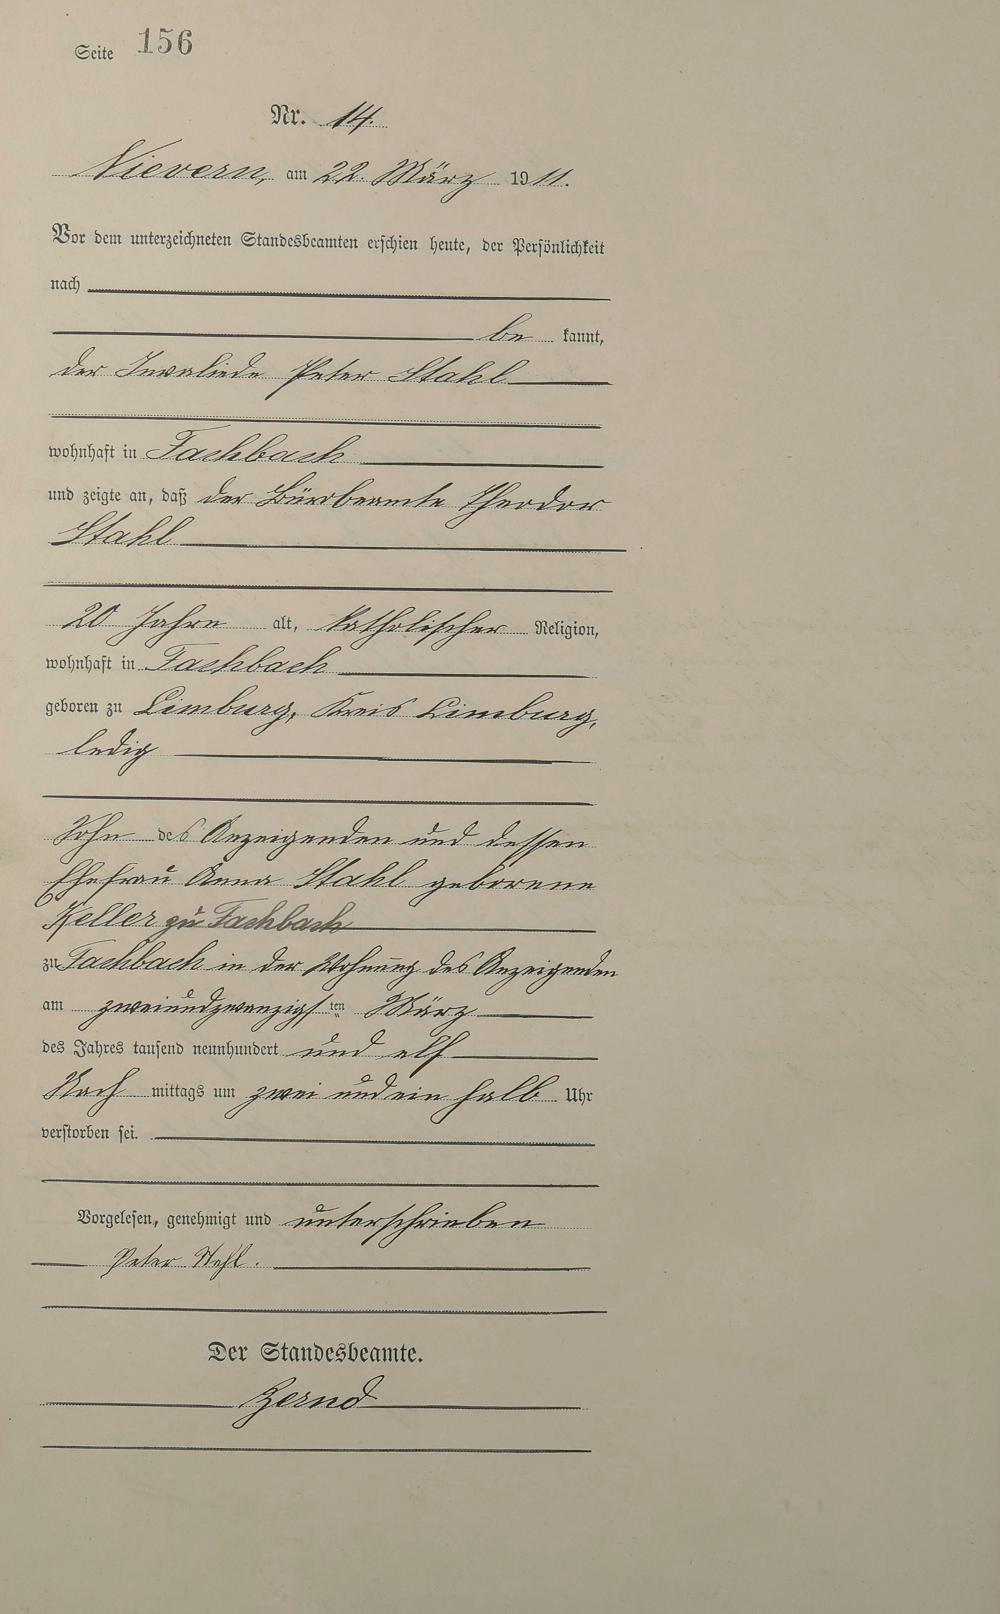 Seite 156
Nr. 14.
Nievern, am 22. März 1911.
Vor dem unterzeichneten Standesbeamten erschien heute, der Persönlichkeit
nach
be kannt,
der Invaliede Peter Stahl
wohnhaft in Fachbach
und zeigte an, daß der Bürobeamte Theodor
Stahl
20 Jahre alt, katholischer Religion,
wohnhaft in Fachbach
geboren zu Limburg, Kreis Limburg,
ledig
Sohn des Anzeigenden und dessen
Ehefrau Anna Stahl geborene
Keller zu Fachbach
zu Fachbach in der Wohnung des Anzeigenden
am zweiundzwanzigsten März
des Jahres tausend neunhundert und elf
Nach mittags um zwei und ein halb Uhr
verstorben sei.
Vorgelesen, genehmigt und unterschrieben
Peter Stahl.
Der Standesbeamte.
Zernd